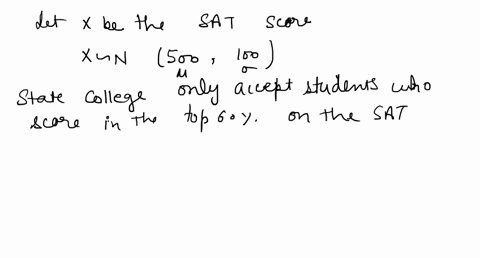 let x be the SAT score
X ~ N (500, 100)
μ σ
State College only accept students who
score in the top 60%. on the SAT